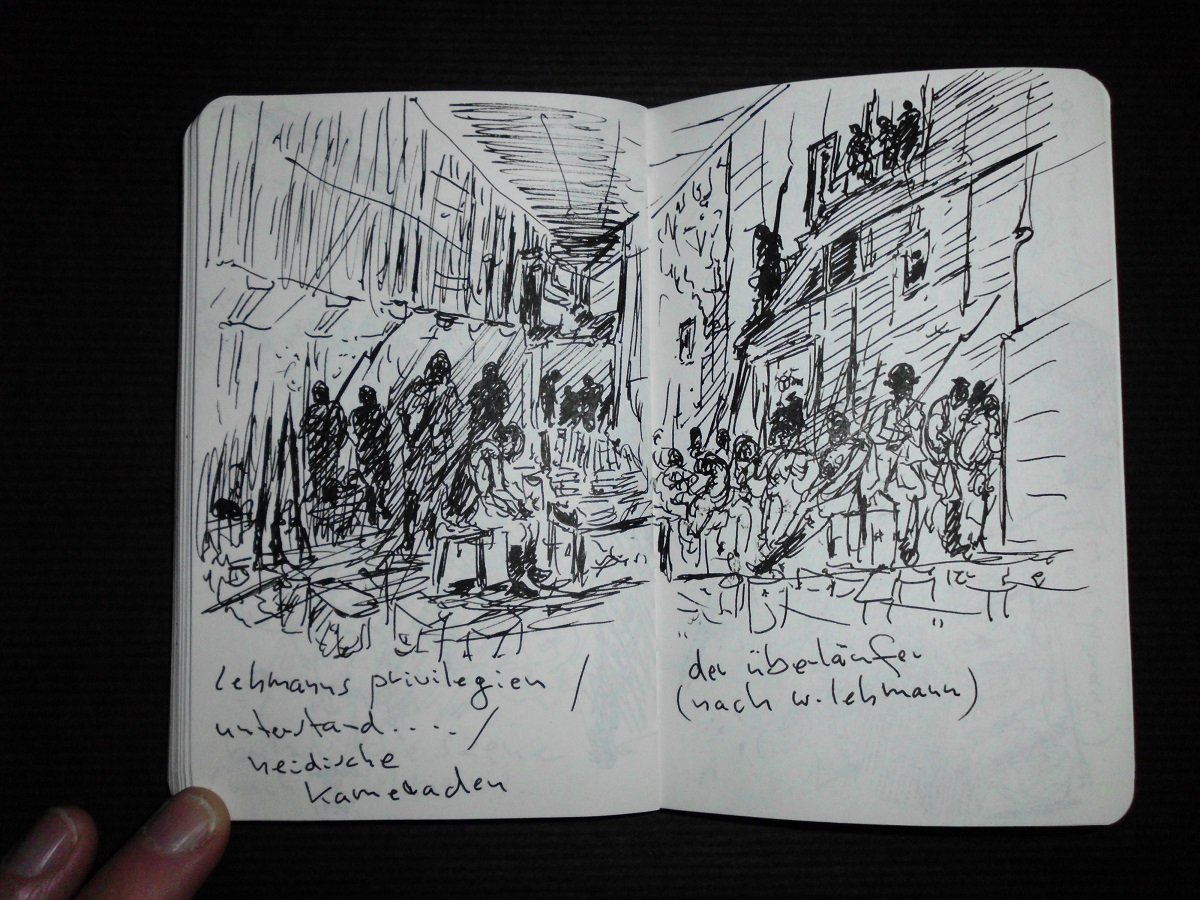 lehmanns privilegien /
unterstand..../
neidische
kameraden
der überläufer
(nach w.lehmann)